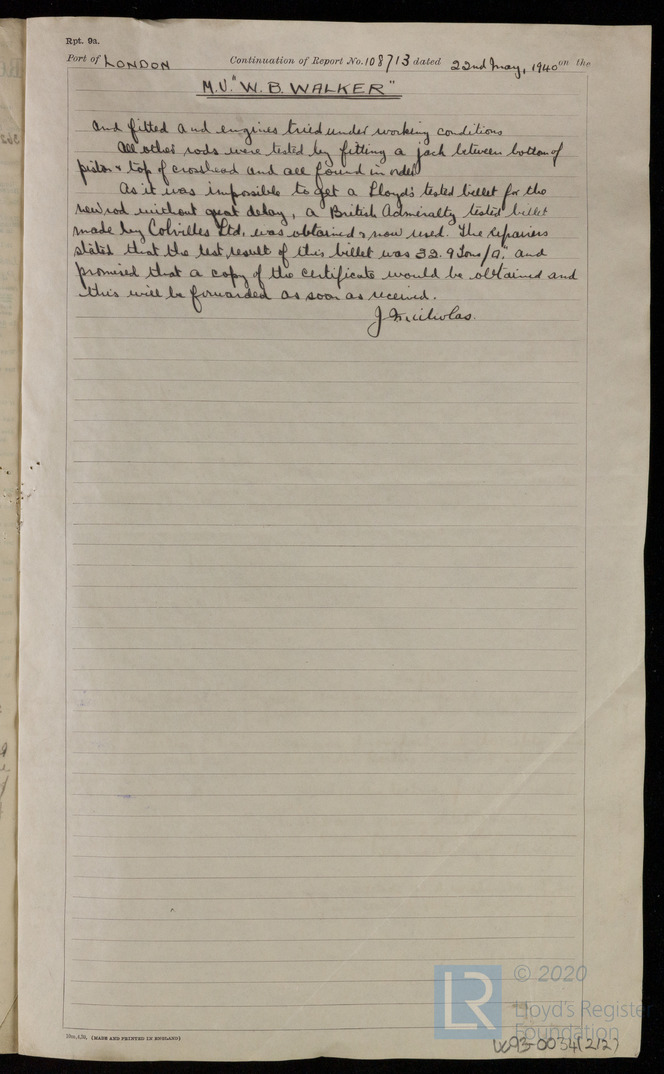 Rpt. 9a.
Port of LONDON Continuation of Report No. 108713 dated 22nd May, 1940 on the
M.V. "W. B. WALKER"
and fitted and engines tried under working conditions
All other rods were tested by fitting a jack between bottom of
piston & top of crosshead and all found in order
As it was impossible to get a Lloyd's tested billet for the
new rod without great delay, a British Admiralty tested billet
made by Colvilles Ltd, was obtained & now used. The repairers
stated that the test result of this billet was 32.9 Tons/□" and
promised that a copy of the certificate would be obtained and
this will be forwarded as soon as received.
Nicholas.
(MADE AND PRINTED IN ENGLAND)
LR © 2020
Lloyd's Register
Foundation
W93-0034(2/2)